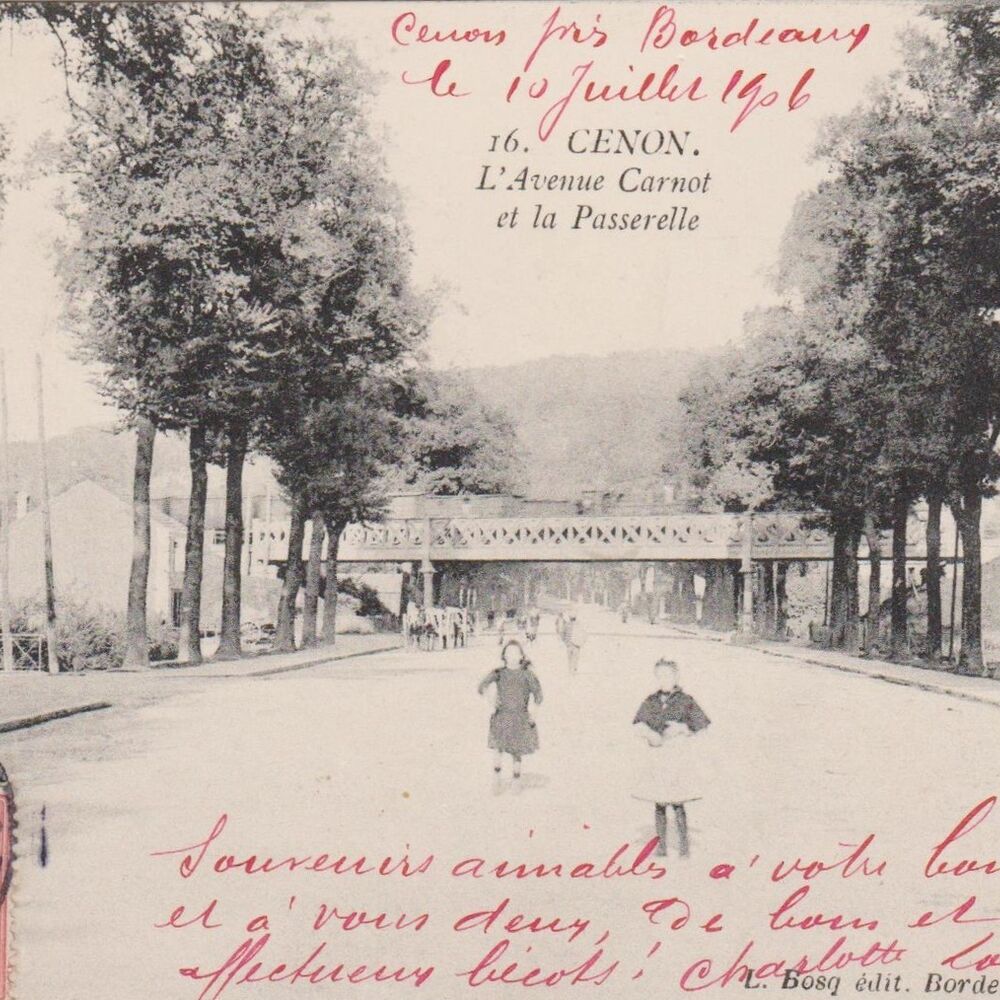 Cenon près Bordeaux
le 10 Juillet 1906
16. CENON.
L'Avenue Carnot
et la Passerelle
Souvenirs aimables à votre
et à vous deux, De bons et
affectueux bécots! Charlotte
L. Bosq édit. Borde